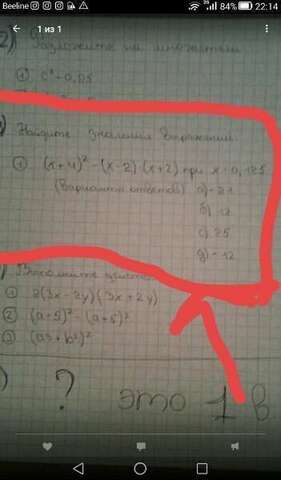 Beeline 84% 22:14
1 из 1
2) Разложите на множители
① c² - 0,25
Найдите значения выражений
① (x+4)² - (x-2)(x+2) при x = 0,125
(Варианты ответов) а) - 21
б) 12
с) 25
д) - 12
) Выполните
① 2(3x-2y)(3x+2y)
② (a+5)² - (a+5)²
③ (a3+b²)²
) ? это 1 в